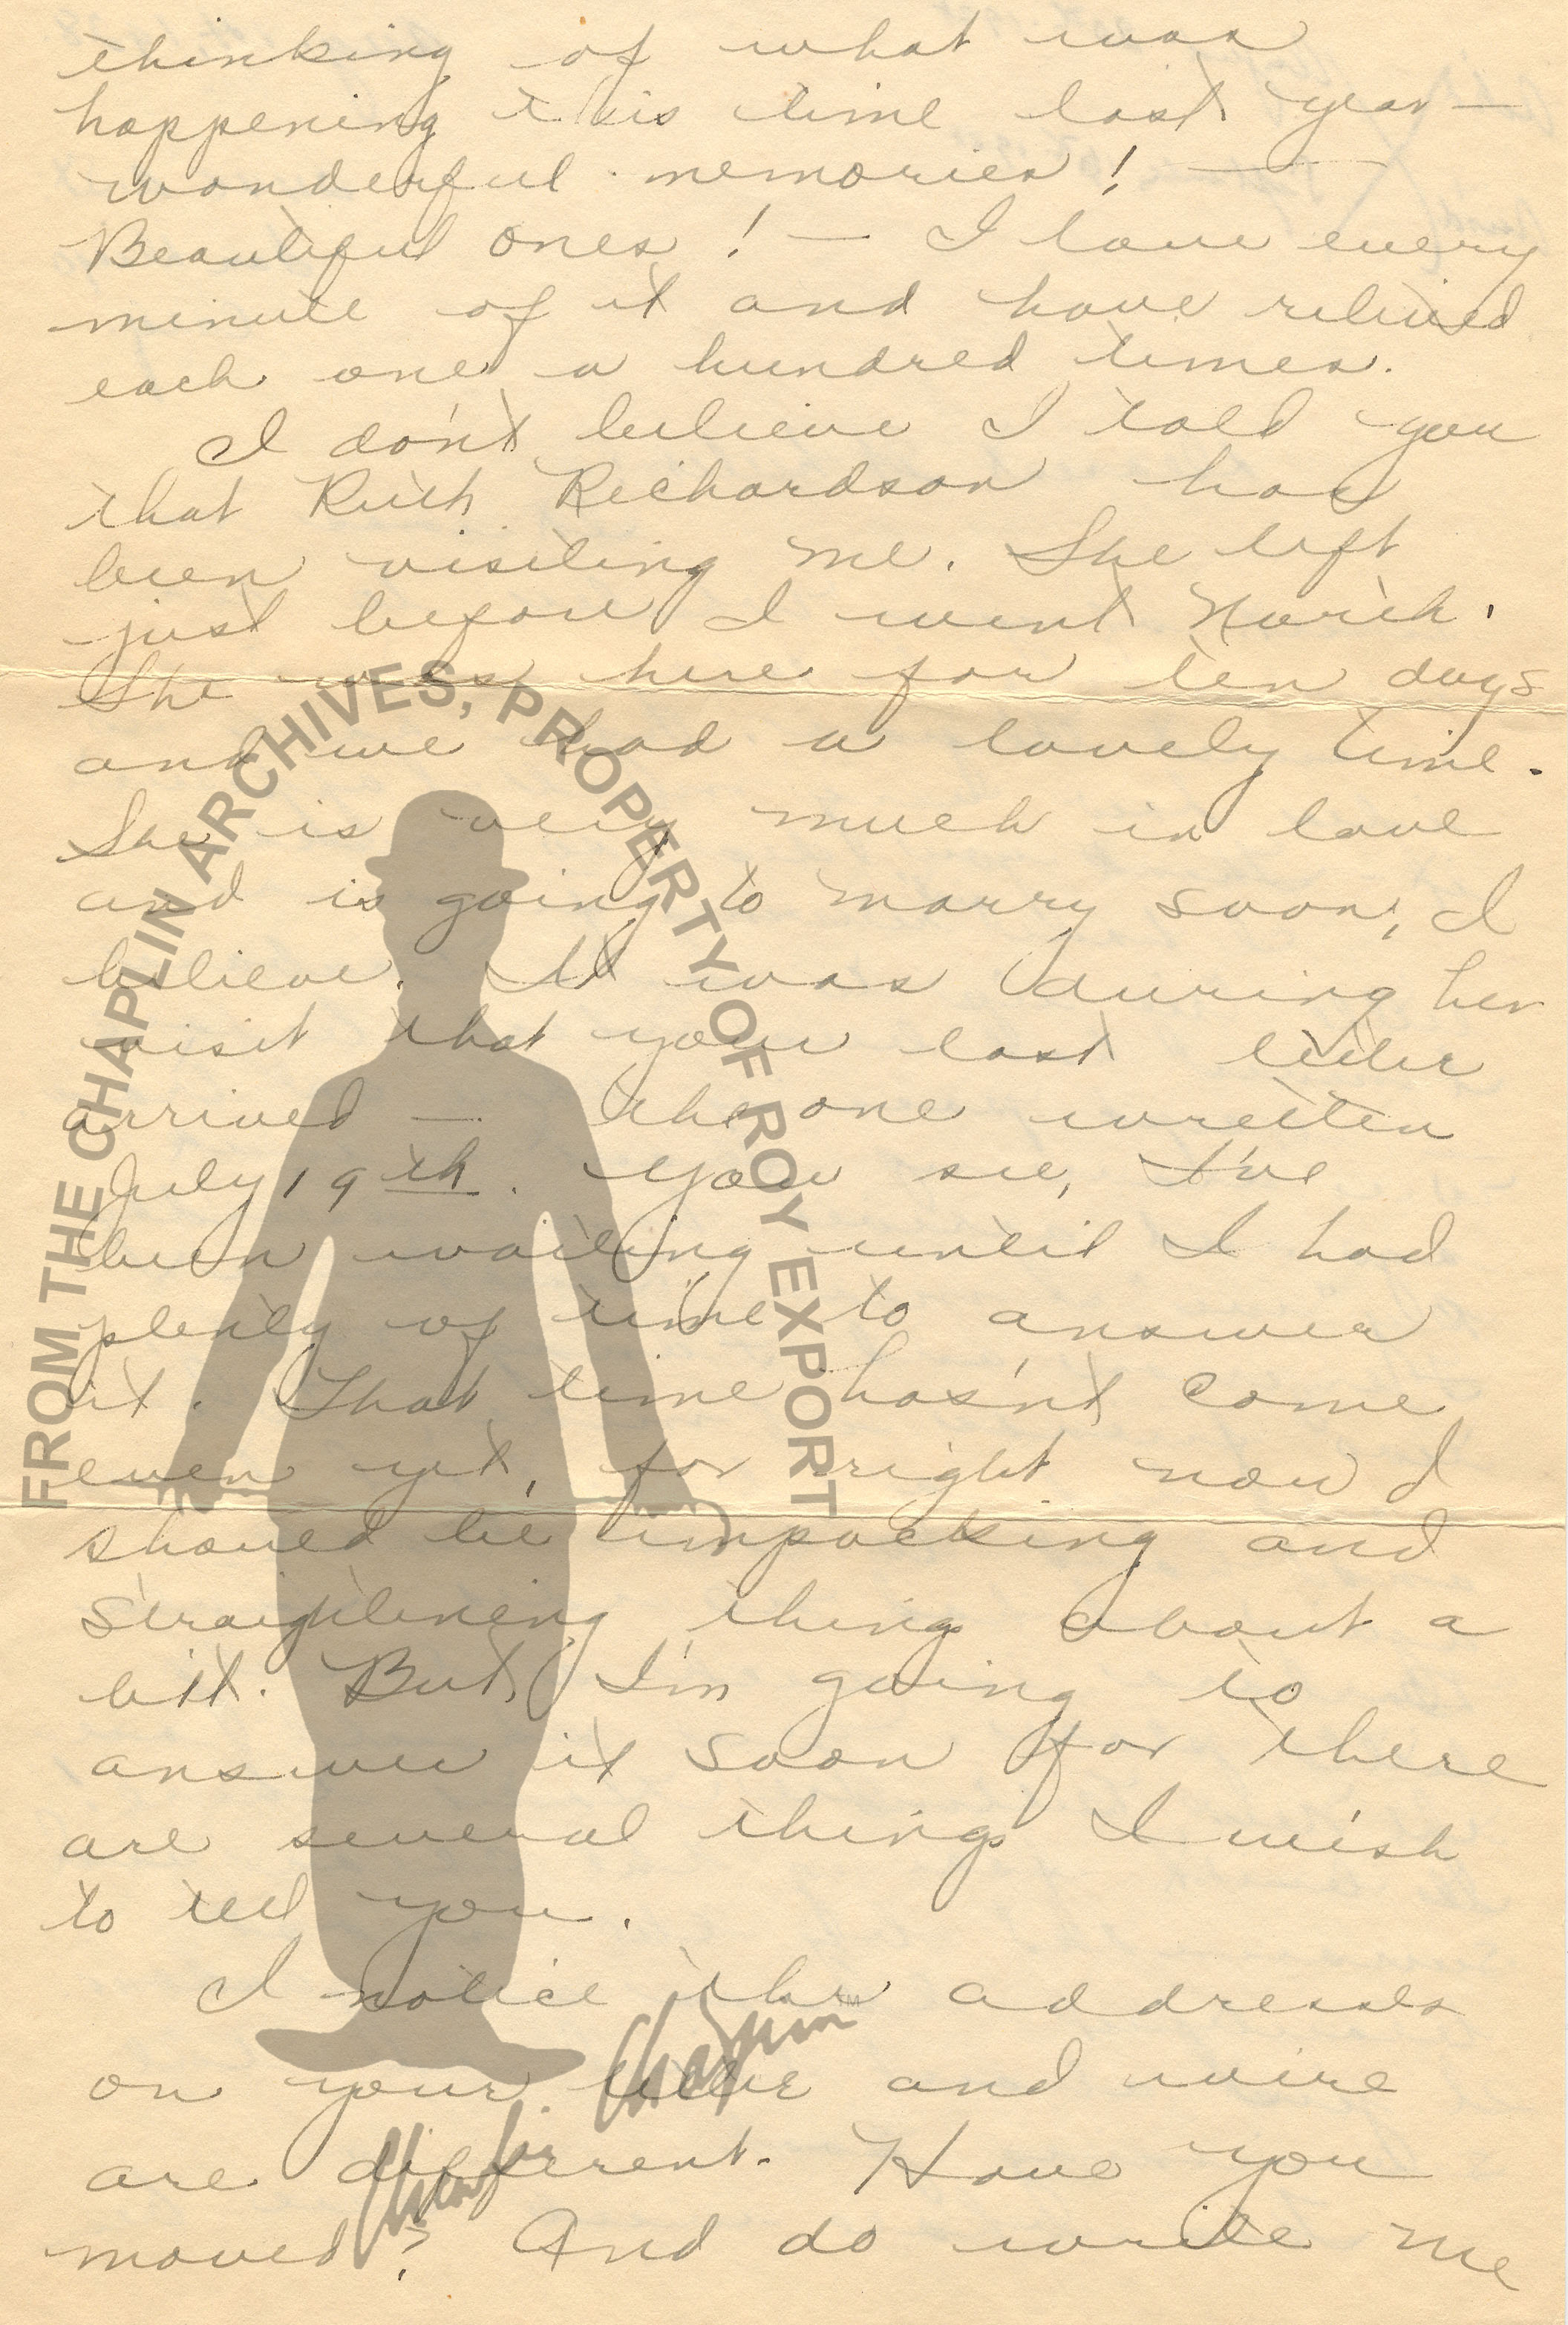 thinking of what was
happening this time last year —
wonderful memories! —
Beautiful ones! — I love every
minute of it and have relived
each one a hundred times.
I don't believe I told you
that Ruth Richardson has
been visiting me. She left
just before I went North.
She was here for ten days
and we had a lovely time.
She is very much in love
and is going to marry soon, I
believe. It was during her
visit that your last letter
arrived — the one written
July 19th. You see, I've
been waiting until I had
plenty of time to answer
it. That time hasn't come
even yet, for right now I
should be unpacking and
straightening things about a
bit. But, I'm going to
answer it soon for there
are several things I wish
to tell you.
I notice the addresses
on your letter and wire
are different. Have you
moved? And do write me
FROM THE CHAPLIN ARCHIVES, PROPERTY OF ROY EXPORT
Charlie Chaplin
TM